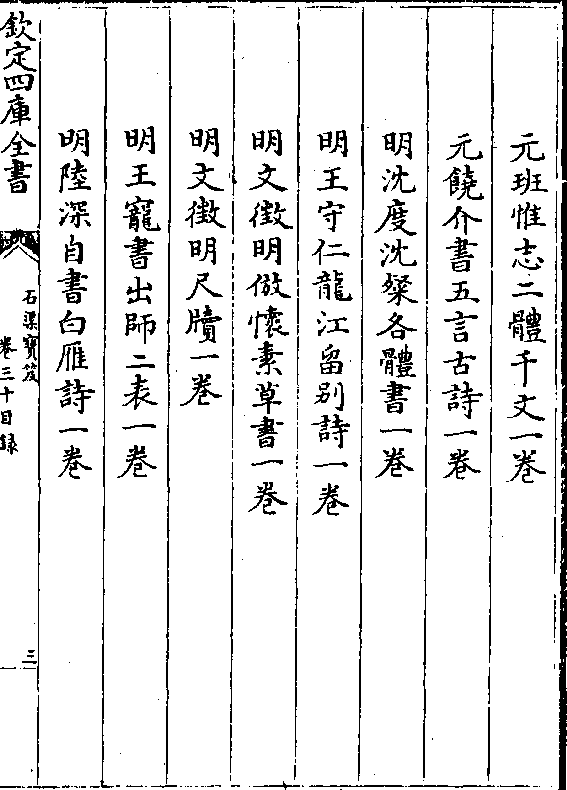 元班惟志二體千文一卷
元饒介書五言古詩一卷
明沈度沈粲各體書一卷
明王守仁龍江留别詩一卷
明文徴明倣懷素草書一卷
明文徴明尺牘一卷
明王寵書出師二表一卷
明陸深自書白雁詩一卷
欽定四庫全書
石渠寶笈
卷三十目録
三